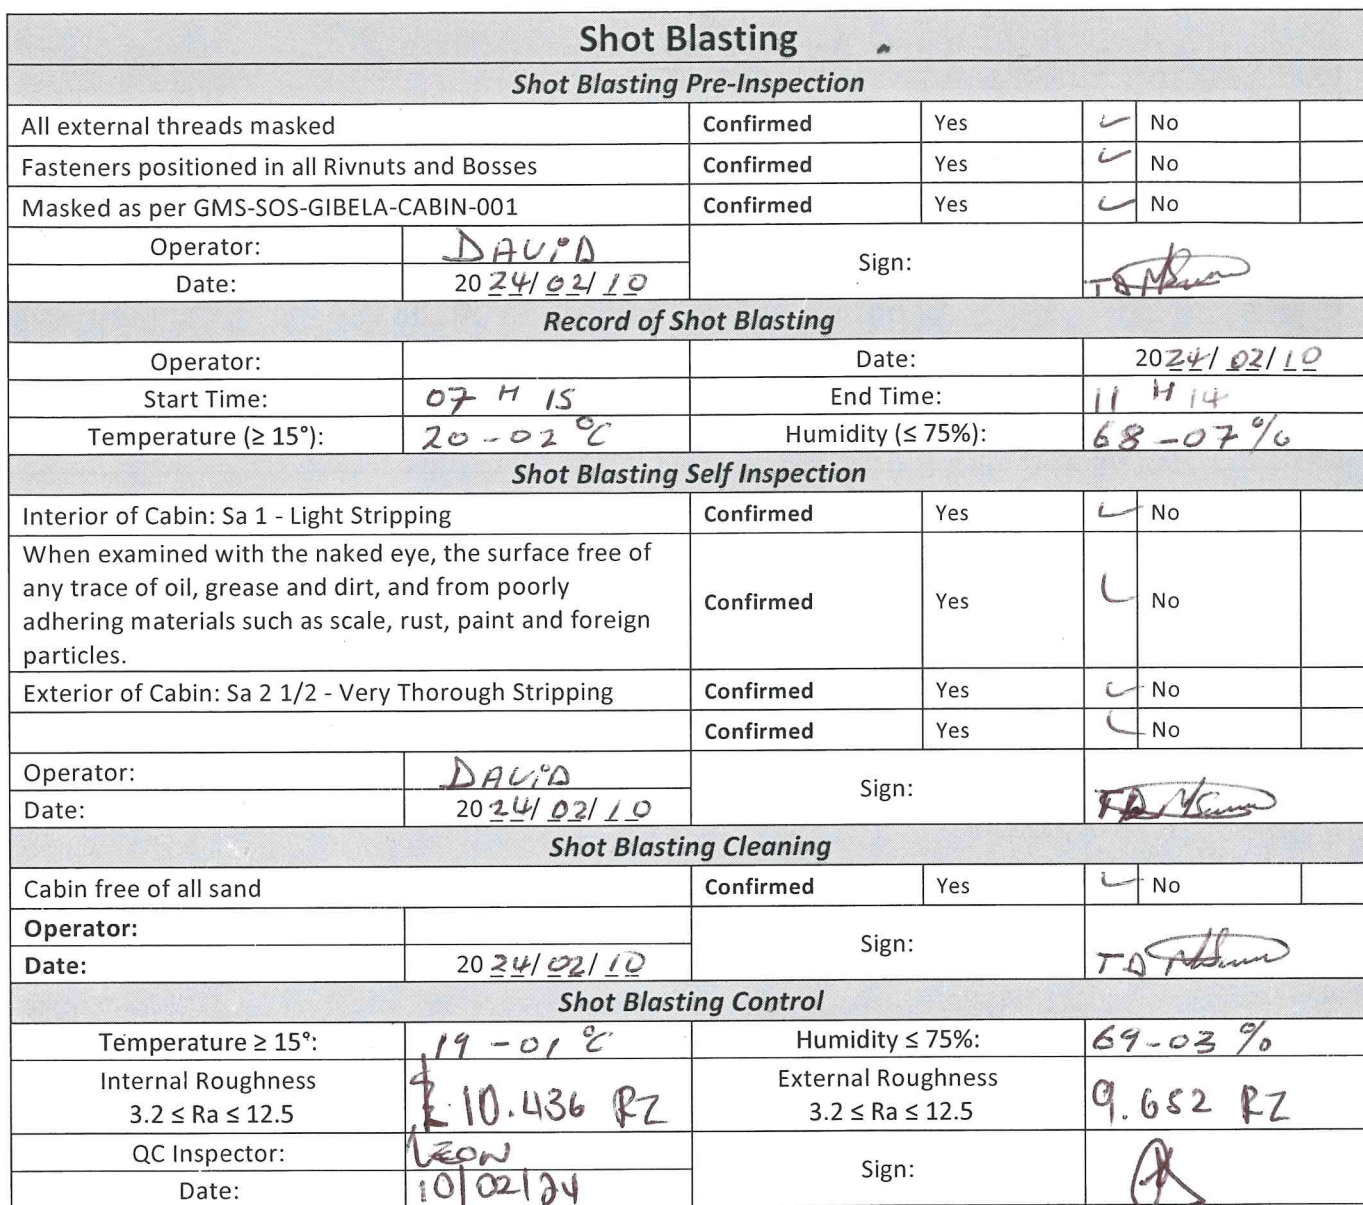 Shot Blasting
Shot Blasting Pre-Inspection
All external threads masked Confirmed Yes ✓ No
Fasteners positioned in all Rivnuts and Bosses Confirmed Yes ✓ No
Masked as per GMS-SOS-GIBELA-CABIN-001 Confirmed Yes ✓ No
Operator: DAViD Sign:
Date: 2024/02/10
Record of Shot Blasting
Operator: Date: 2024/02/10
Start Time: 07 H 15 End Time: 11 H 14
Temperature (≥ 15°): 20-02 °C Humidity (≤ 75%): 68-07%
Shot Blasting Self Inspection
Interior of Cabin: Sa 1 - Light Stripping Confirmed Yes ✓ No
When examined with the naked eye, the surface free of
any trace of oil, grease and dirt, and from poorly
adhering materials such as scale, rust, paint and foreign
particles.
Confirmed Yes ✓ No
Exterior of Cabin: Sa 2 1/2 - Very Thorough Stripping Confirmed Yes ✓ No
Confirmed Yes ✓ No
Operator: DAViD Sign:
Date: 2024/02/10
Shot Blasting Cleaning
Cabin free of all sand Confirmed Yes ✓ No
Operator: Sign: TD
Date: 2024/02/10
Shot Blasting Control
Temperature ≥ 15°: 19-01 °C Humidity ≤ 75%: 69-03 %
Internal Roughness
3.2 ≤ Ra ≤ 12.5
10.436 RZ
External Roughness
3.2 ≤ Ra ≤ 12.5
9.652 RZ
QC Inspector: LEON Sign:
Date: 10/02/24